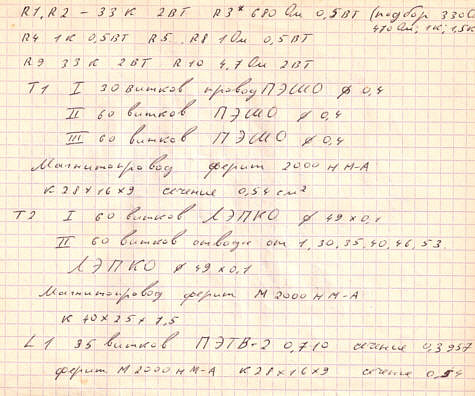 R1, R2 - 33 К 2ВТ R3* 680 Ом 0,5ВТ (подбор 330 
470 Ом, 1К, 1,5К
R4 1К 0,5ВТ R5 R8 1 Ом 0,5ВТ
R9 33 К 2ВТ R10 4,7 Ом 2ВТ
Т1 I 30 витков провод ПЭШО ⌀ 0,4
II 60 витков ПЭШО ⌀ 0,4
III 60 витков ПЭШО ⌀ 0,4
Магнитопровод ферит 2000 НМ-А
К 28×16×9 сечение 0,54 см²
Т2 I 60 витков ЛЭПКО ⌀ 49×0,1
II 60 витков отводы от 1, 30, 35, 40, 46, 53.
ЛЭПКО ⌀ 49×0,1
Магнитопровод ферит М 2000 НМ-А
К 40×25×7,5
L1 35 витков ПЭТВ-2 0,710 сечение 0,3957
ферит М 2000 НМ-А К 28×16×9 сечение 0,54